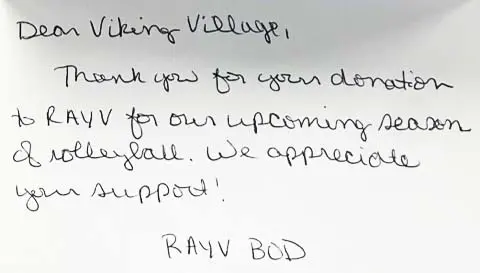 Dear Viking Village,
Thank you for your donation
to RAYV for our upcoming season
of volleyball. We appreciate
your support!
RAYV BOD